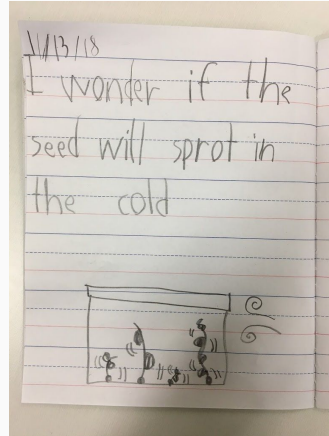 11/13/18
I wonder if the
seed will sprot in
the cold